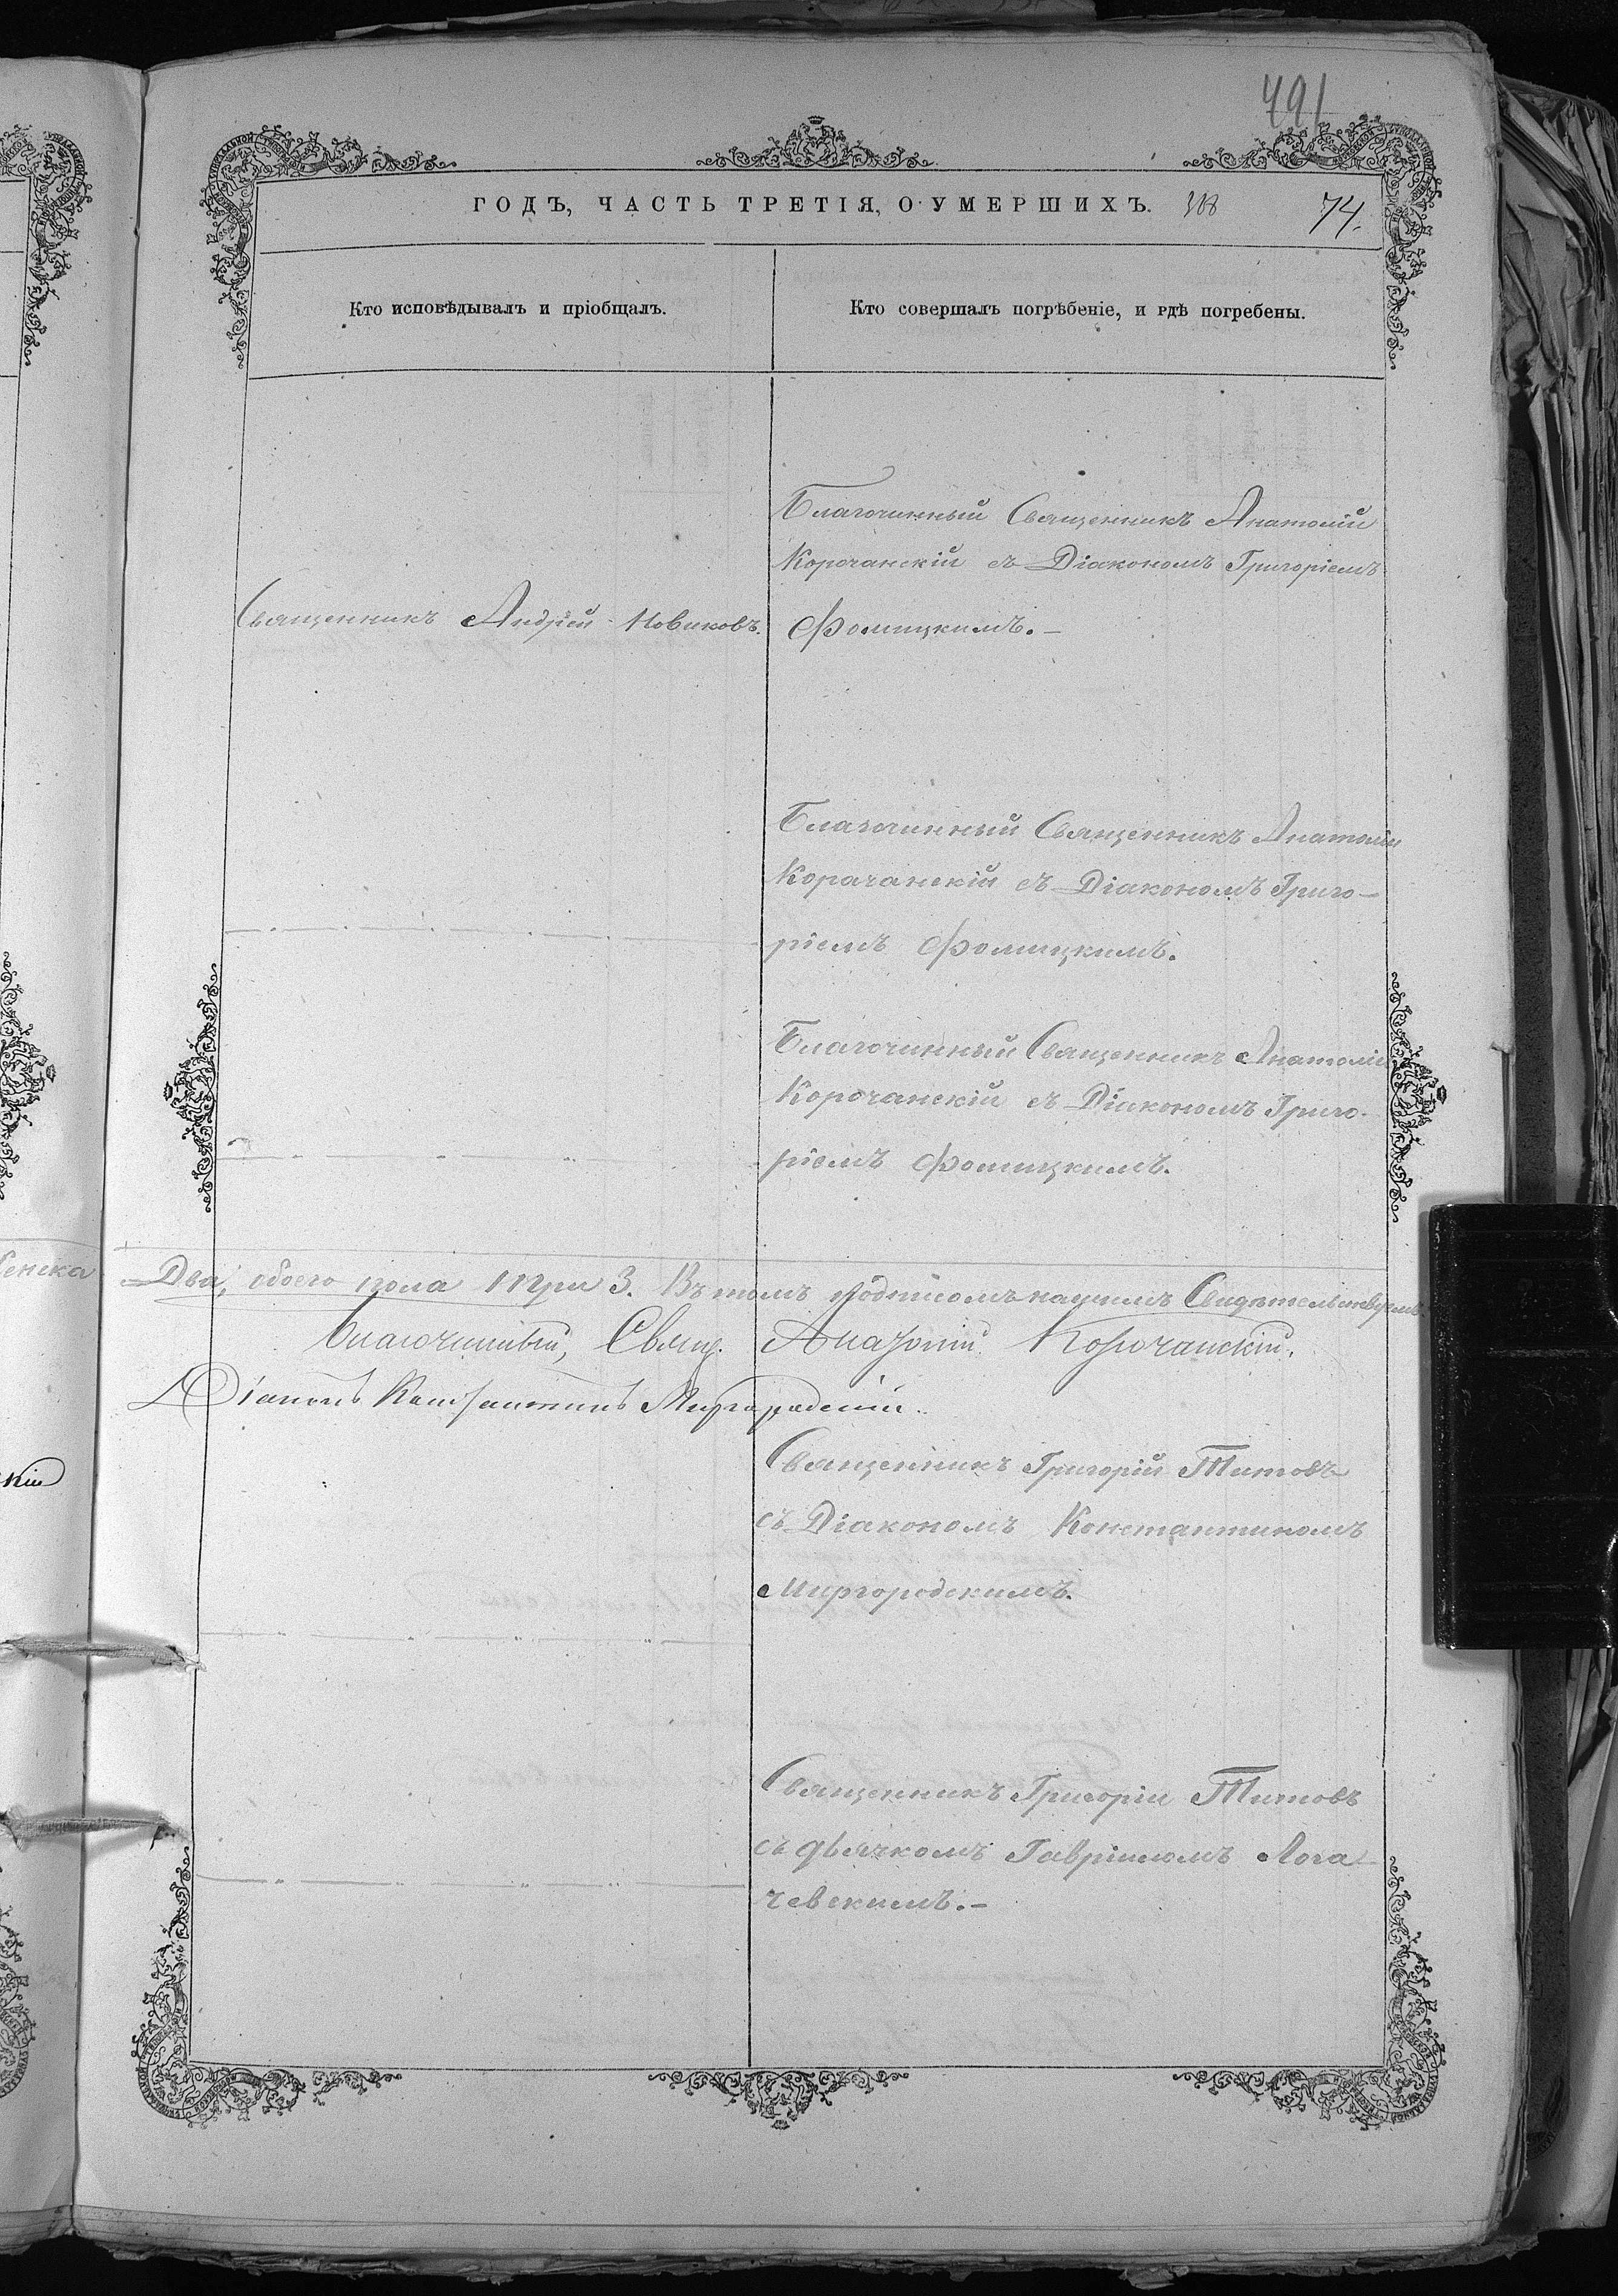 791
ГОДЪ, ЧАСТЬ ТРЕТІЯ, О УМЕРШИХЪ. 308 74.
Кто исповѣдывалъ и пріобщалъ.
Кто совершалъ погрѣбеніе, и гдѣ погребены.
Благочинный Священникъ Анатолій
Корочанскій съ Діакономъ Григоріемъ
Священникъ Андрей Новиковъ.
Фомицкимъ.—
Благочинный Священникъ Анатолій
Корочанскій съ Діакономъ Григо-
ріемъ Фомицкимъ.
Благочинный Священникъ Анатолій
Корочанскій съ Діакономъ Григо-
ріемъ Фомицкимъ.
Два, обоего пола три 3. Въ томъ подписомъ нашимъ Свидѣтельствуемъ
Благочинный, Свящ. Анатолій Корочанскій.
Діаконъ Константинъ Миргородскій.
Священникъ Григорій Титовъ
съ Діакономъ Константиномъ
Миргородскимъ.
Священникъ Григорій Титовъ
съ дьячкомъ Гавріиломъ Лога
чевскимъ.—